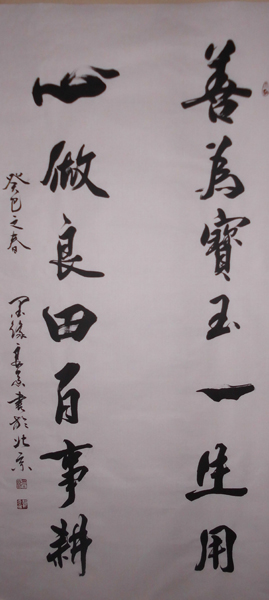 善為寶玉一生用
心做良田百事耕
癸巳之春
書於北京